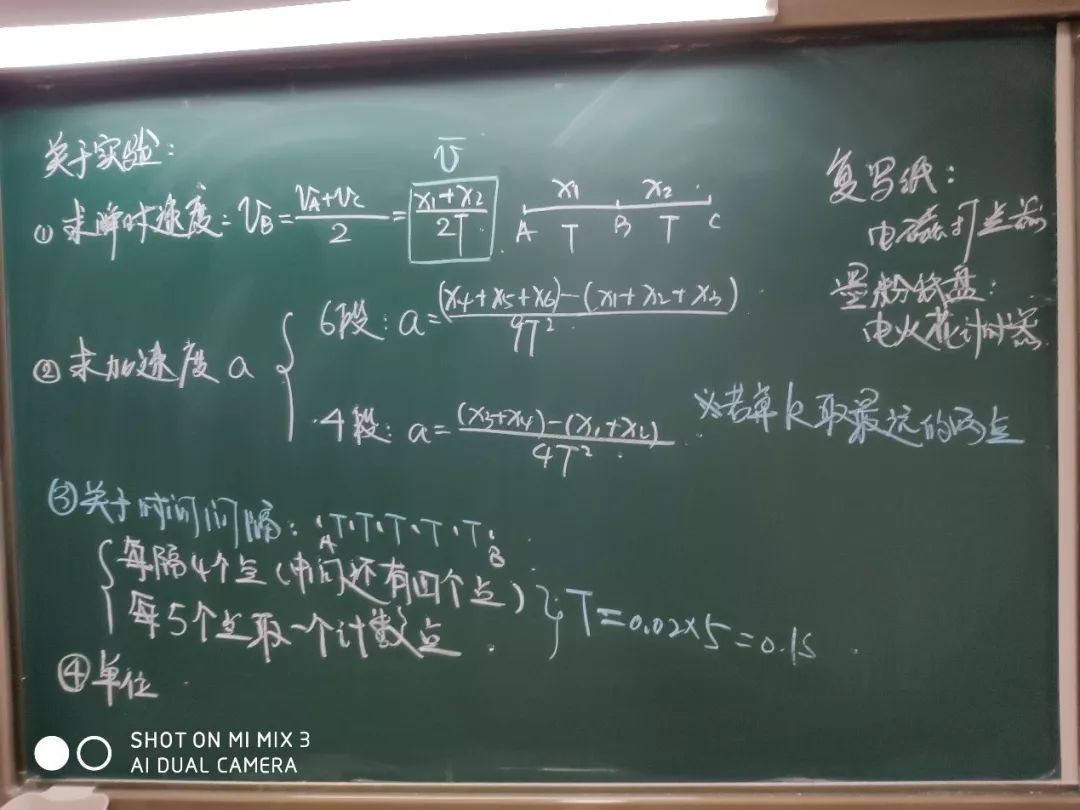 关于实验:
① 求瞬时速度: VB = (VA+VC)/2 = (x1+x2)/2T
v̄
x1 x2
A T B T C
② 求加速度 a
6段: a = ((x4+x5+x6)-(x1+x2+x3))/9T²
4段: a = ((x3+x4)-(x1+x2))/4T²
③ 关于时间间隔: ·T·T·T·T·T·
A B
每隔4个点(中间还有四个点)
每5个点取一个计数点.
T=0.02×5=0.1s
④ 单位
复写纸:
电磁打点器
墨粉纸盘:
电火花计时器
※若算k取最远的两点
SHOT ON MI MIX 3
AI DUAL CAMERA